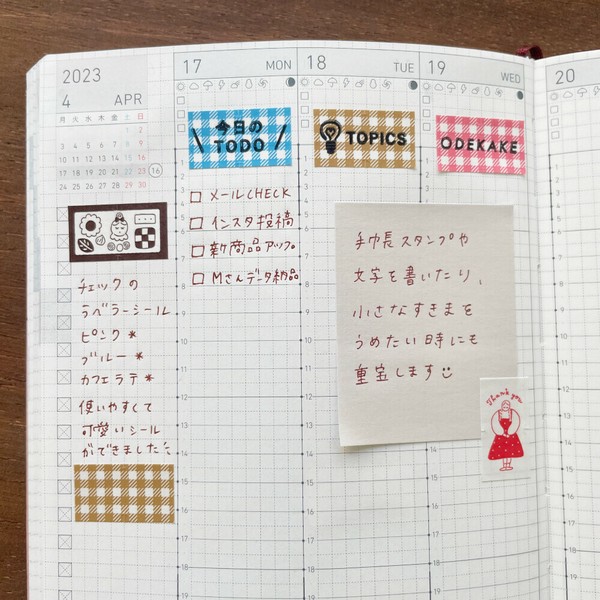 2023
4 APR
月 火 水 木 金 土 日
1 2
3 4 5 6 7 8 9
10 11 12 13 14 15 16
17 18 19 20 21 22 23
24 25 26 27 28 29 30
16
チェックの
ラベラーシール
ピンク*
ブルー*
カフェラテ*
使いやすくて
可愛いシール
ができました
17 MON
今日の
TODO
メールCHECK
インスタ投稿
新商品アップ
Mさんデータ納品
18 TUE
TOPICS
手帖スタンプや
文字を書いたり、
小さなすきまを
うめたい時にも
重宝します
19 WED
ODEKAKE
Thank you
20